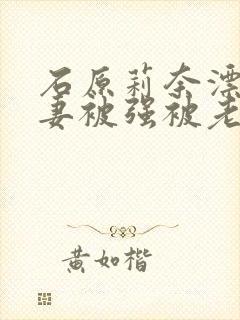 石原莉奈漂
妻被强被老
黄如楷